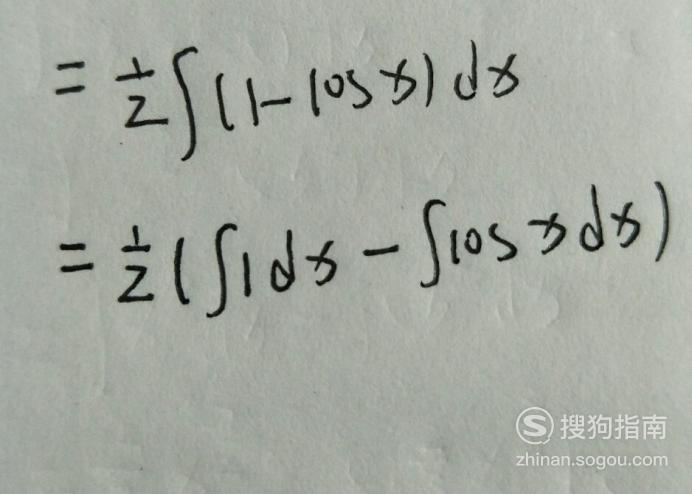 = 1/2 ∫(1 - cos x) dx
= 1/2 (∫1dx - ∫cos x dx)
S 搜狗指南
zhinan.sogou.com